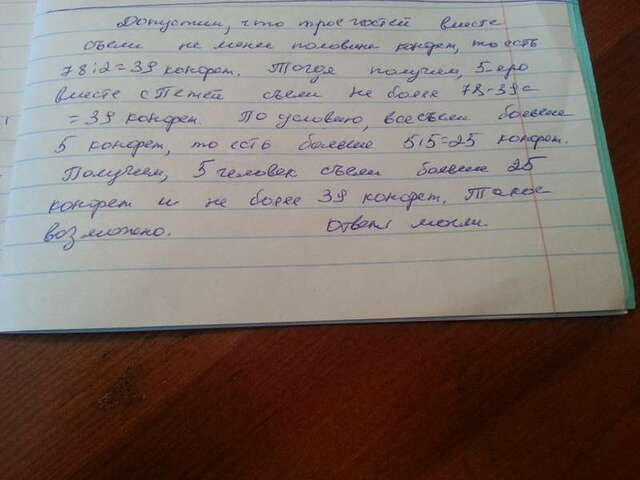 Допустим, что трое гостей вместе
съели не менее половины конфет, то есть
78:2=39 конфет. Тогда получим, 5-еро
вместе с Петей съели не более 78-39=
=39 конфет. По условию, все съели больше
5 конфет, то есть больше 5·5=25 конфет.
Получаем, 5 человек съели больше 25
конфет и не более 39 конфет. Такое
возможно.
Ответ: могли